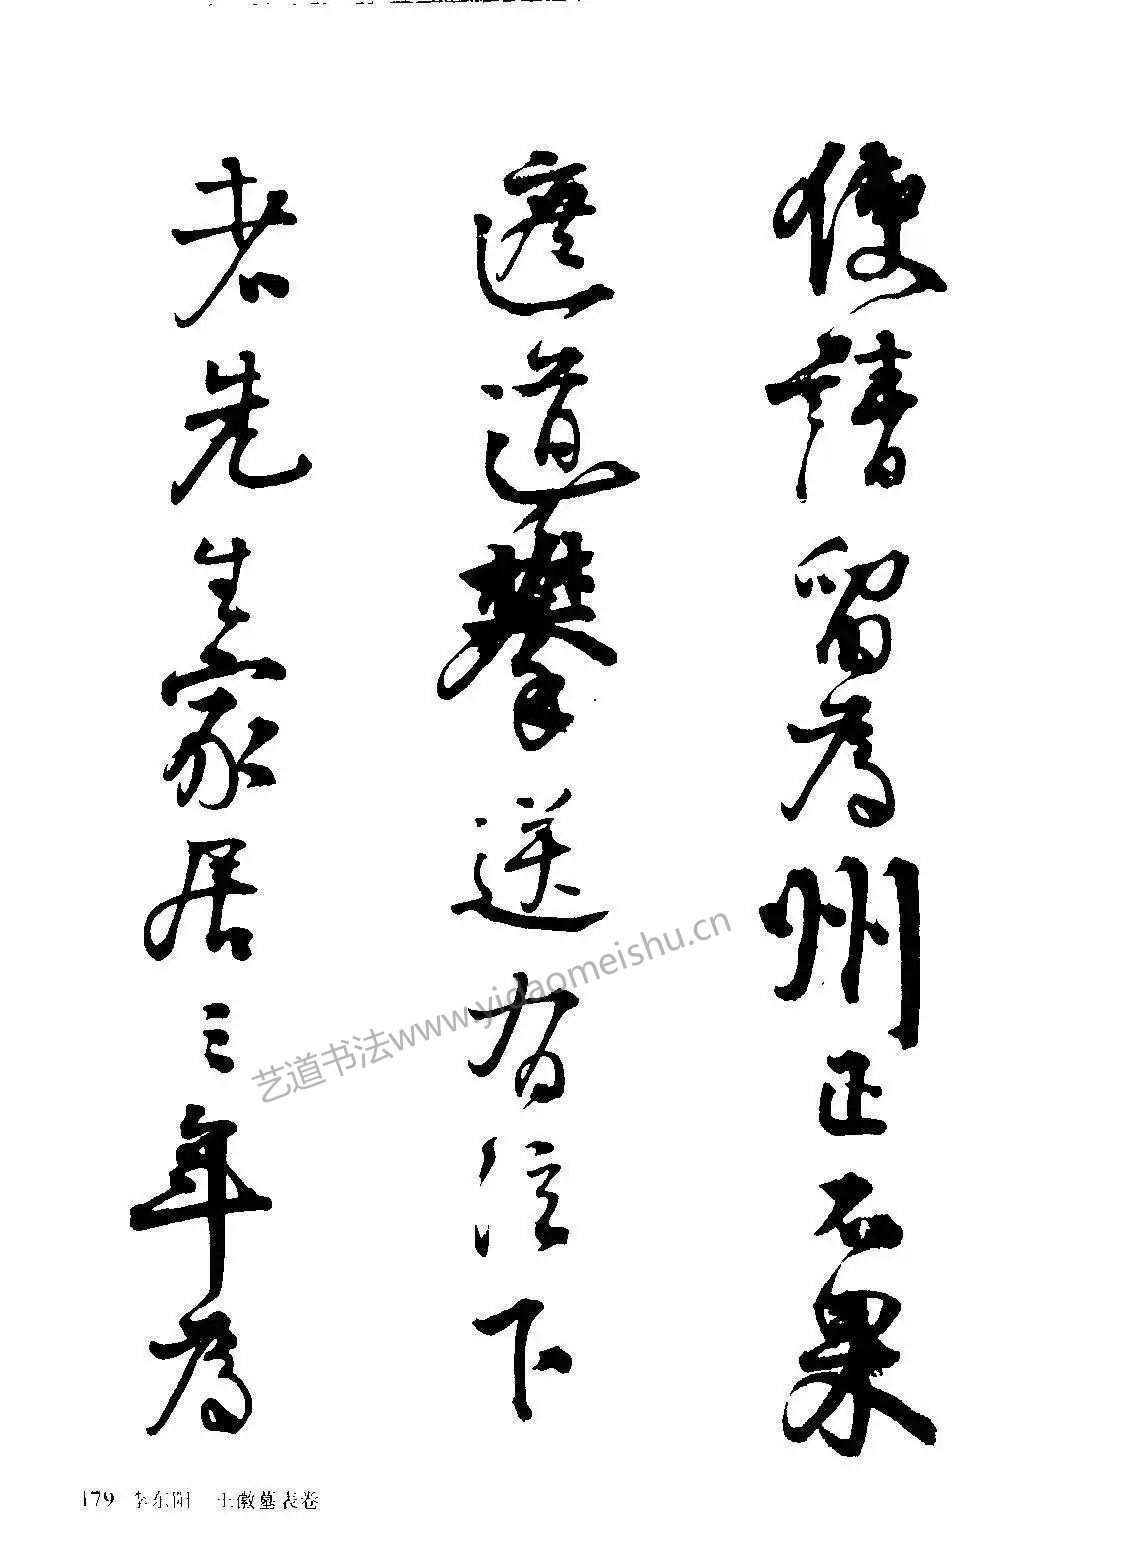 使請留為州正不果
遮道攀送有泣下
者先生家居三年為
艺道书法www.yidaomeishu.cn
179 李东阳 王徽墓表卷